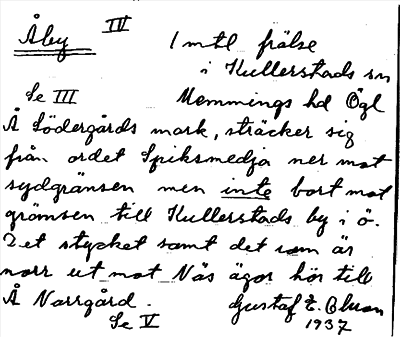 Åby IV 1 mtl frälse
i Kullerstads sn
Se III Memmings hd Ögl
Å Södergårds mark, sträcker sig
från ordet Spiksmedja ner mot
sydgränsen men inte bort mot
gränsen till Kullerstads by i ö.
Det stycket samt det som är
norr ut mot Näs ägor hör till
Å Norrgård. Gustaf E.
Se V 1937